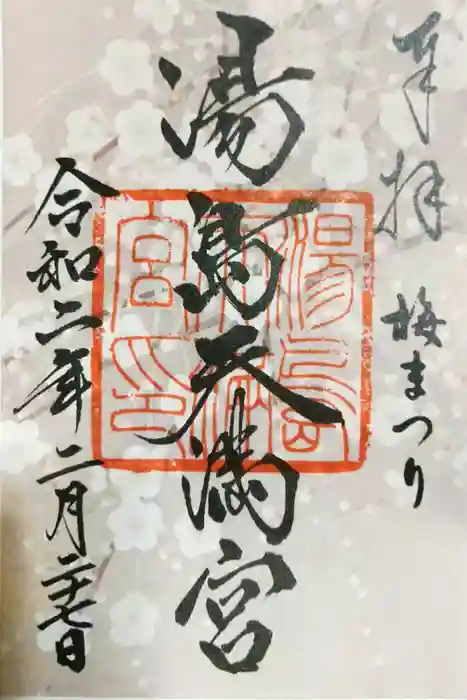 奉拝 梅まつり
湯島天満宮
湯島
天満
宮印
令和二年二月二十七日